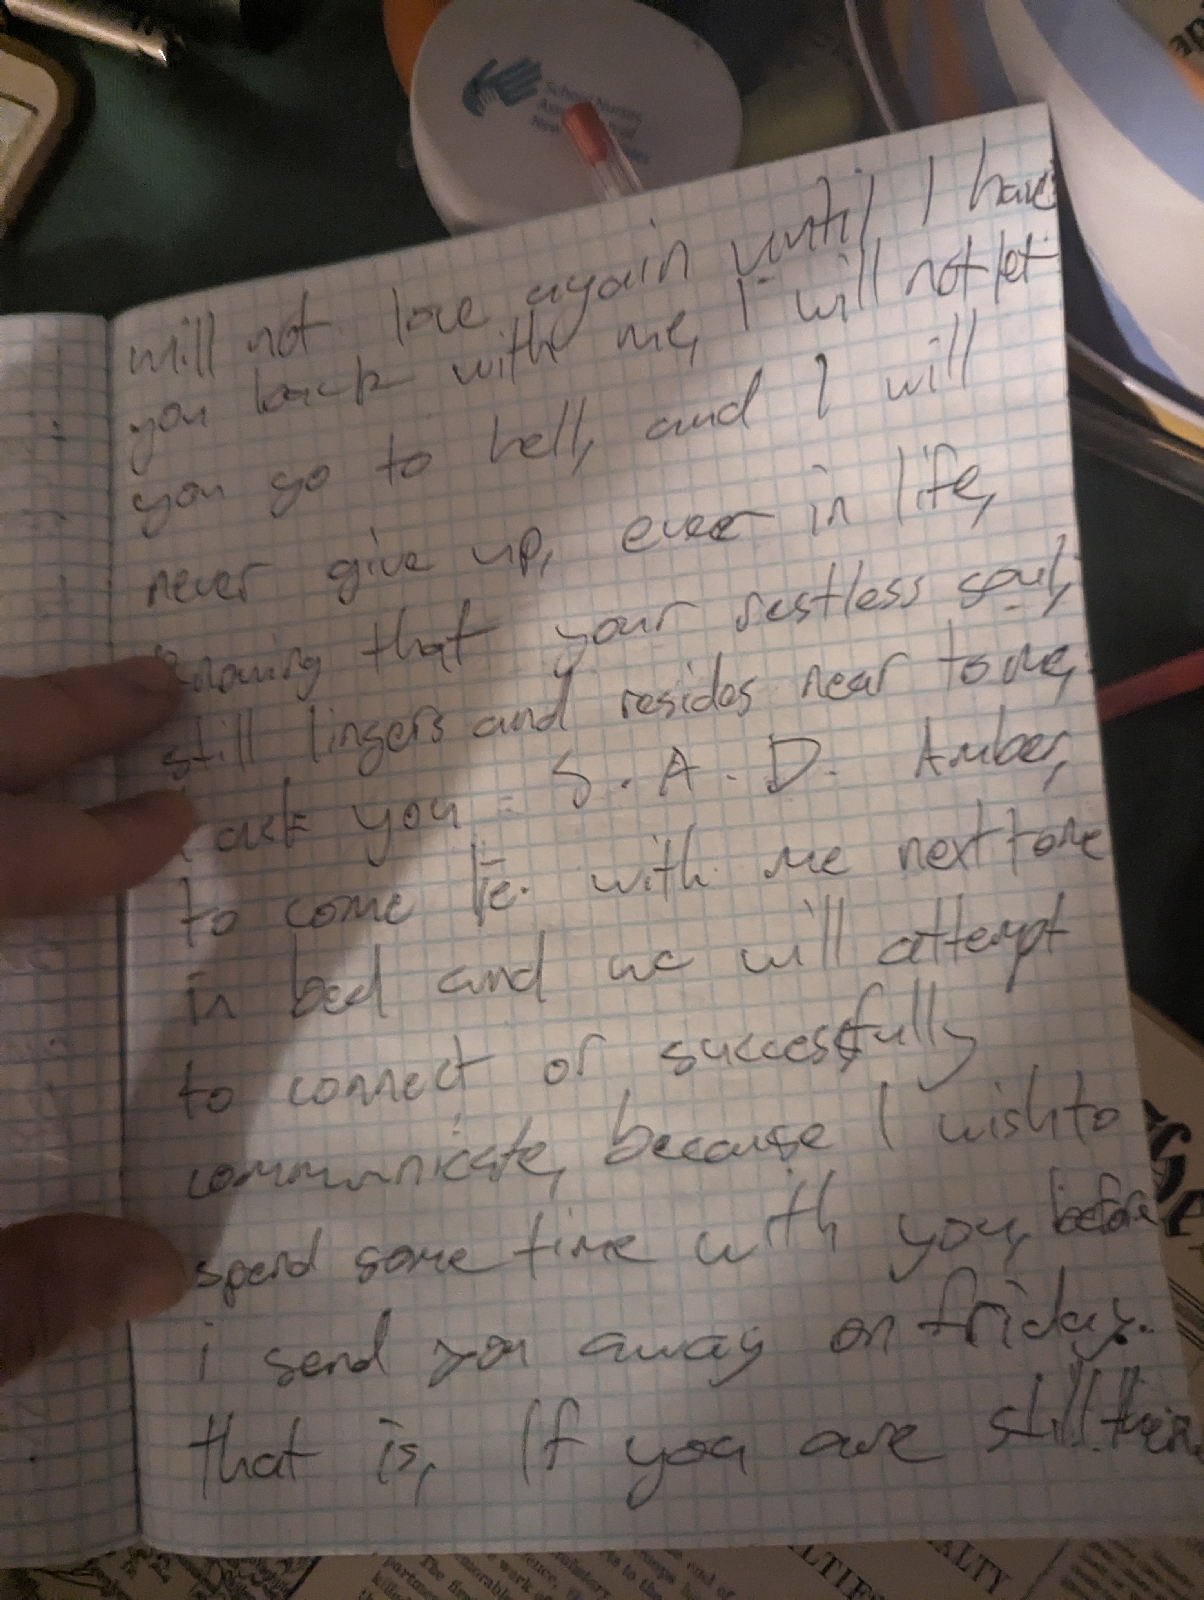 School Nurses
will not love again until I have
you back with me, I will not let
you go to hell, and I will
never give up, ever in life,
knowing that your restless soul,
still lingers and resides near to me,
I ask you - S. A. D. Amber,
to come lie. with me next to me
in bed and we will attempt
to connect or successfully
communicate, because I wish to
spend some time with you, before
i send you away on friday.
that is, If you are still